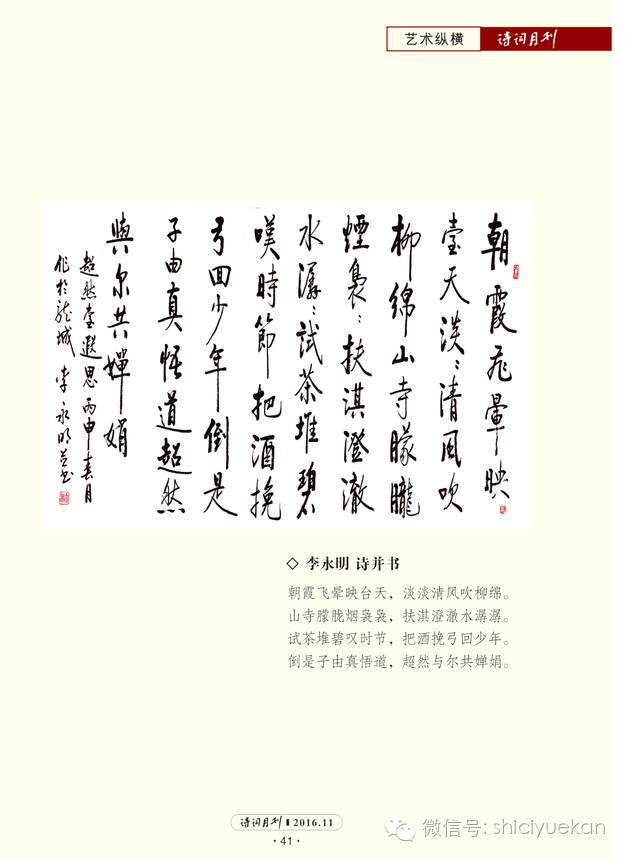 艺术纵横 诗词月刊
朝霞飛暈映
臺天淡:清風吹
柳綿山寺朦朧
煙裊:扶淇澄澈
水潺:試茶堆碧
嘆時節把酒挽
弓回少年倒是
子由真悟道超然
與尔共嬋娟
超然臺遐思 丙申春月
作於龙城 李永明並书
◇ 李永明 诗并书
朝霞飞晕映台天，淡淡清风吹柳绵。
山寺朦胧烟袅袅，扶淇澄澈水潺潺。
试茶堆碧叹时节，把酒挽弓回少年。
倒是子由真悟道，超然与尔共婵娟。
诗词月刊 2016.11
·41·
微信号: shiciyuekan